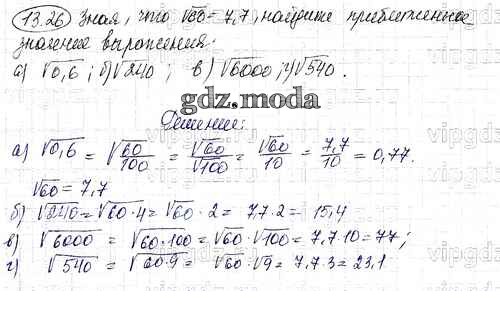 13.26 Зная, что √60 = 7,7, найдите приближенное
значение выражения:
а) √0,6; б) √240; в) √6000; г) √540.
gdz.moda
Решение:
а) √0,6 = √60/100 = √60/√100 = √60/10 = 7,7/10 = 0,77.
√60 = 7,7
б) √240 = √60·4 = √60·2 = 7,7·2 = 15,4
в) √6000 = √60·100 = √60·√100 = 7,7·10 = 77;
г) √540 = √60·9 = √60·√9 = 7,7·3 = 23,1